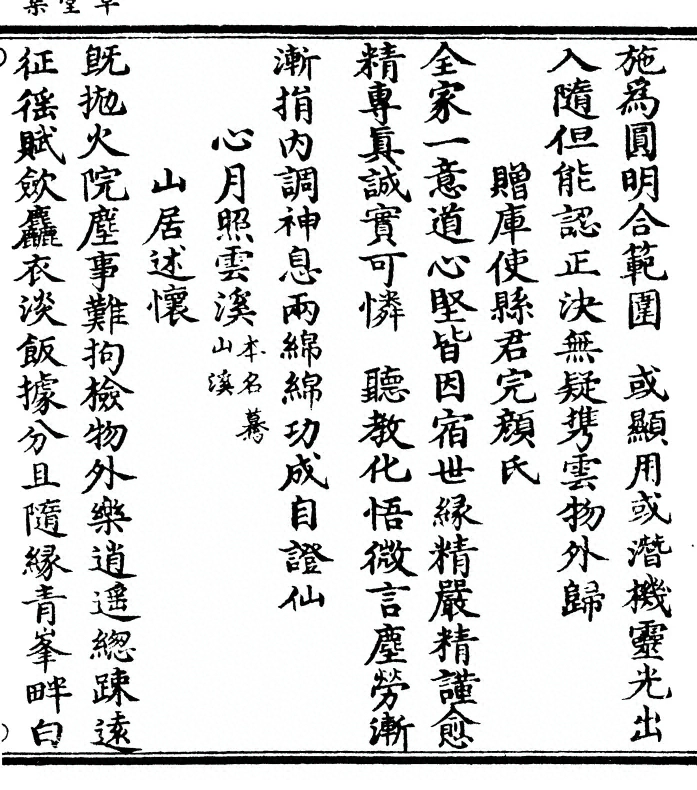 施為圓明合範圍　或顯用或潛機靈光出
入隨但能認正決無疑携雲物外歸
贈庫使縣君完顏氏
全家一意道心堅皆因宿世緣精嚴精謹愈
精專真誠實可憐　聽教化悟微言塵勞漸
漸捐內調神息兩綿綿功成自證仙
心月照雲溪本名驀山溪
山居述懷
既抛火院塵事難拘檢物外樂逍遥總踈遠
征徭賦斂麤衣淡飯據分且隨緣青峯畔白